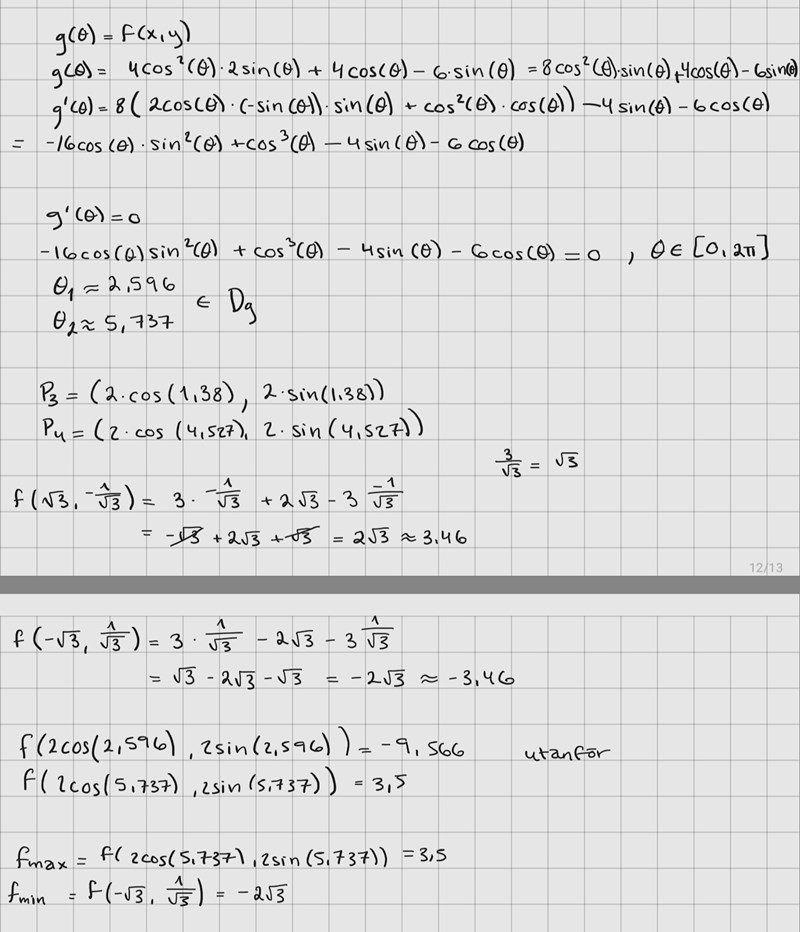 g(θ) = f(x,y)
g(θ) = 4cos²(θ)·2sin(θ) + 4cos(θ) − 6·sin(θ) = 8cos²(θ)·sin(θ)+4cos(θ) − 6sin(θ)
g'(θ) = 8(2cos(θ)·(-sin(θ))·sin(θ) + cos²(θ)·cos(θ)) − 4sin(θ) − 6cos(θ)
= -16cos(θ)·sin²(θ) + cos³(θ) − 4sin(θ) − 6cos(θ)
g'(θ) = 0
-16cos(θ)sin²(θ) + cos³(θ) − 4sin(θ) − 6cos(θ) = 0 , θ ∈ [0, 2π]
θ₁ ≈ 2,596
θ₂ ≈ 5,737 ∈ Dg
P₃ = (2·cos(1,38), 2·sin(1.38))
P₄ = (2·cos(4,527), 2·sin(4,527))
3/√3 = √3
f(√3, -1/√3) = 3·-1/√3 + 2√3 − 3 -1/√3
= -√3 + 2√3 + √3 = 2√3 ≈ 3.46
12/13
f(-√3, 1/√3) = 3·1/√3 − 2√3 − 3 1/√3
= √3 − 2√3 − √3 = −2√3 ≈ −3,46
f(2cos(2,596), 2sin(2,596)) = −9,566 utanför
f(2cos(5,737), 2sin(5,737)) = 3,5
fmax = f(2cos(5,737), 2sin(5,737)) = 3,5
fmin = f(-√3, 1/√3) = −2√3